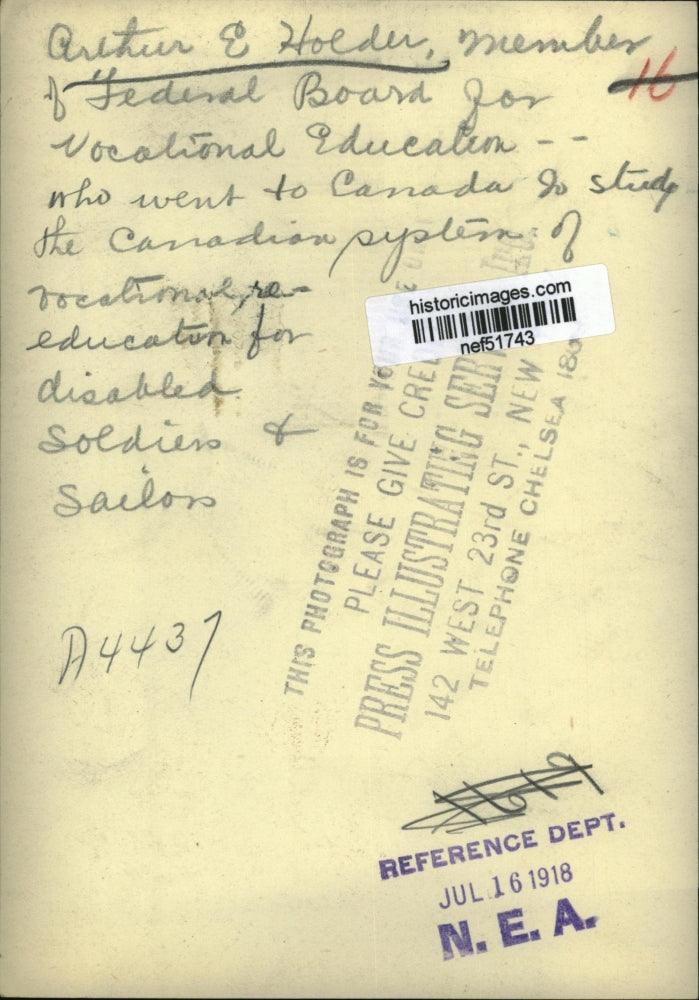 Arthur E Holder, member
of Federal Board for
16
Vocational Education - -
who went to Canada to study
the Canadian system of
vocational, re-
education for
disabled
Soldiers &
Sailors
historicimages.com
nef51743
THIS PHOTOGRAPH IS FOR
PLEASE GIVE
PRESS ILLUSTRATING SERV Inc.
142 WEST 23rd ST., NEW
TELEPHONE CHELSEA
A4437
REFERENCE DEPT.
JUL 16 1918
N. E. A.